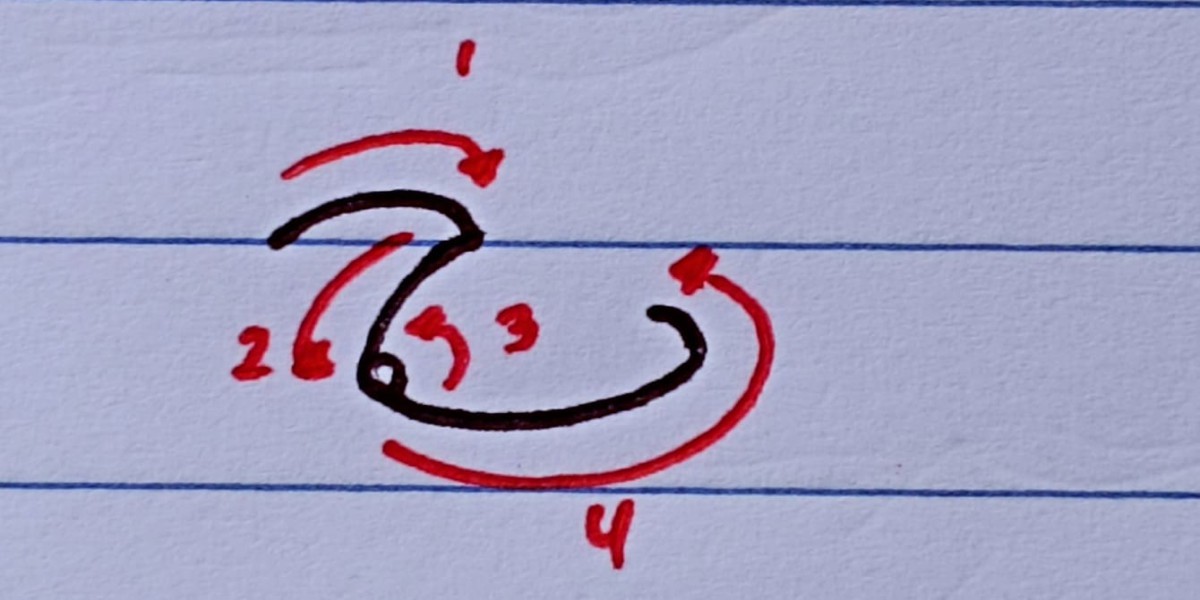 1
2 3
4